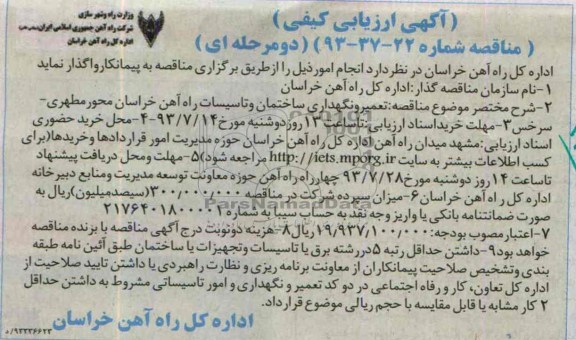 وزارت راه و شهر سازی
شرکت راه آهن جمهوری اسلامی ایران
اداره کل راه آهن خراسان
(آگهی ارزیابی کیفی)
(مناقصه شماره ۲۲-۳۷-۹۳) (دومرحله ای)
اداره کل راه آهن خراسان در نظر دارد انجام امور ذیل را از طریق برگزاری مناقصه به پیمانکار واگذار نماید
۱-نام سازمان مناقصه گذار:اداره کل راه آهن خراسان
۲-شرح مختصر موضوع مناقصه:تعمیرونگهداری ساختمان وتاسیسات راه آهن خراسان محورمطهری-
سرخس۳-مهلت خریداسناد ارزیابی:تاساعت ۱۳ روزدوشنبه مورخ ۹۳/۷/۱۴-۴-محل خرید حضوری
اسناد ارزیابی:مشهد میدان راه آهن اداره کل راه آهن خراسان حوزه مدیریت امور قراردادها وخریدها(برای
کسب اطلاعات بیشتر به سایت http://iets.mporg.ir مراجعه شود)۵-مهلت ومحل دریافت پیشنهاد
تاساعت ۱۴روز دوشنبه مورخ ۹۳/۷/۲۸ چهارراه راه آهن حوزه معاونت توسعه مدیریت ومنابع دبیرخانه
اداره کل راه آهن خراسان۶-میزان سپرده شرکت در مناقصه ۳۰۰/۰۰۰/۰۰۰(سیصدمیلیون)ریال به
صورت ضمانتنامه بانکی یا واریز وجه نقد به حساب سیبا به شماره ۲۱۷۶۴۰۱۸۰۰۰۰۱
۷-اعتبارمصوب بودجه:۱۹/۹۳۷/۱۰۰/۰۰۰ریال۸-هزینه دونوبت درج آگهی مناقصه با برنده مناقصه
خواهد بود۹-داشتن حداقل رتبه ۵دررشته برق یا تاسیسات وتجهیزات یا ساختمان طبق آئین نامه طبقه
بندی وتشخیص صلاحیت پیمانکاران از معاونت برنامه ریزی و نظارت راهبردی یا داشتن تایید صلاحیت از
اداره کل تعاون، کار و رفاه اجتماعی در دو کد تعمیر و نگهداری و امور تاسیساتی مشروط به داشتن حداقل
۲ کار مشابه یا قابل مقایسه با حجم ریالی موضوع قرارداد.
اداره کل راه آهن خراسان
ParsNamadData